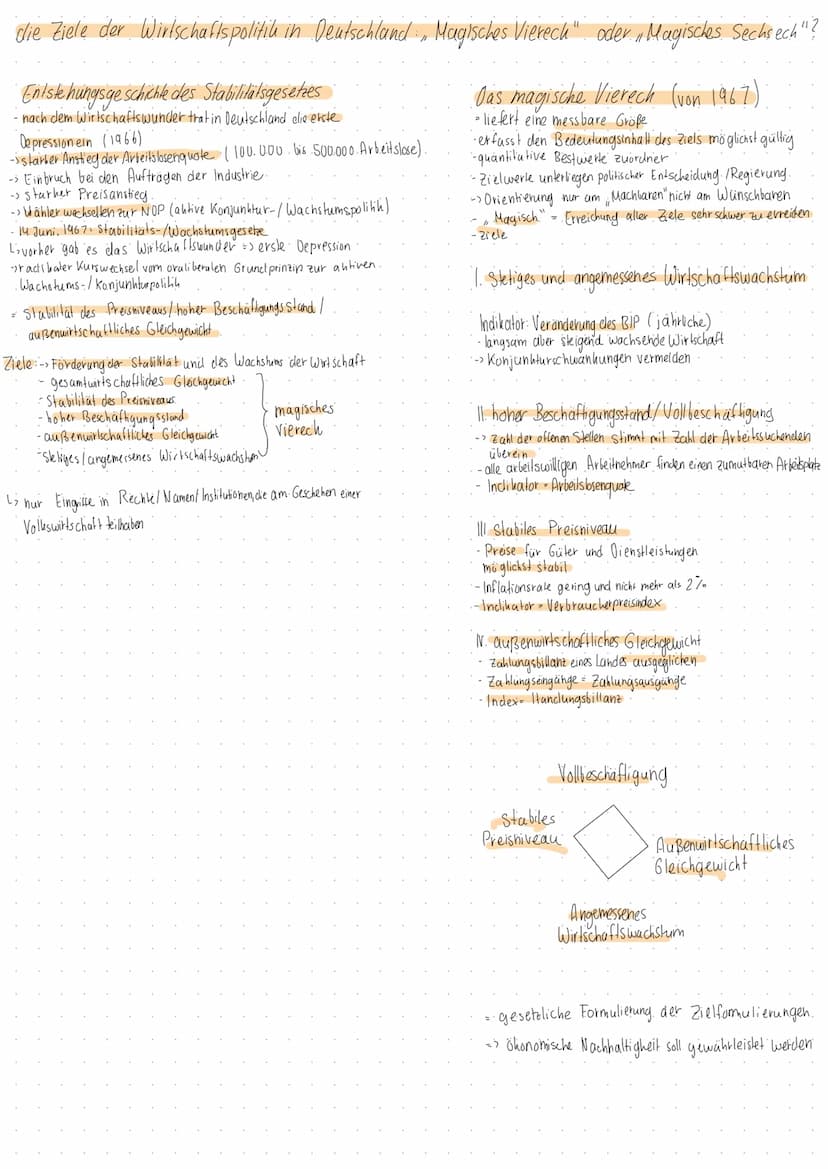 die Ziele der Wirtschaftspolitik in Deutschland: „Magisches Viereck" oder „Magisches Sechseck"?
Entstehungsgeschichte des Stabilitätsgesetzes
- nach dem Wirtschaftswunder trat in Deutschland die erste
Depression ein (1966)
-> starker Anstieg der Arbeitslosenquote (100.000 bis 500.000 Arbeitslose)
-> Einbruch bei den Aufträgen der Industrie
-> starker Preisanstieg
-> Wähler wechselten zur NDP (aktive Konjunktur-/Wachstumspolitik)
- 14 Juni. 1967: Stabilitäts-/Wachstumsgesetz
↳ vorher gab es das Wirtschaftswunder => erste Depression
-> radikaler Kurswechsel vom oraliberalen Grundprinzip zur aktiven
Wachstums-/Konjunkturpolitik
= Stabilität des Preisniveaus/hoher Beschäftigungsstand/
außenwirtschaftliches Gleichgewicht
Ziele: -> Förderung der Stabilität und des Wachstums der Wirtschaft
- gesamtwirtschaftliches Gleichgewicht
- Stabilität des Preisniveaus
- hoher Beschäftgungsstand
- außenwirtschaftliches Gleichgewicht
- Stetiges/angemessenes Wirtschaftswachstum
magisches
Viereck
↳ nur Eingriffe in Rechte/Namen/Institutionen, die am Geschehen einer
Volkswirtschaft teilhaben
Das magische Viereck (von 1967)
= liefert eine messbare Größe
- erfasst den Bedeutungsinhalt des Ziels möglichst gültig
- quantitative Bestwerte zuordner
- Zielwerte unterliegen politischer Entscheidung/Regierung
-> Orientierung nur am „Machbaren" nicht am Wünschbaren
- „Magisch" = Erreichung aller Ziele sehr schwer zu erreichen
- Ziele
I. Stetiges und angemessenes Wirtschaftswachstum
Indikator: Veränderung des BIP (jährliche)
- langsam aber steigend wachsende Wirtschaft
-> Konjunkturschwankungen vermeiden
II. hoher Beschäftigungsstand/Vollbeschäftigung
-> Zahl der offenen Stellen stimmt mit Zahl der Arbeitssuchenden
überein
- alle arbeitswilligen Arbeitnehmer finden einen zumutbaren Arbeitsplatz
- Indikator = Arbeitslosenquote
III. Stabiles Preisniveau
- Preise für Güter und Dienstleistungen
möglichst stabil
- Inflationsrate gering und nicht mehr als 2%
- Indikator = Verbraucherpreisindex
IV. außenwirtschaftliches Gleichgewicht
- Zahlungsbillanz eines Landes ausgeglichen
- Zahlungseingänge = Zahlungsausgänge
- Index = Handlungsbillanz
Vollbeschäftigung
Stabiles
Preisniveau
Außenwirtschaftliches
Gleichgewicht
Angemessenes
Wirtschaftswachstum
= gesetzliche Formulierung der Zielformulierungen
=> ökonomische Nachhaltigkeit soll gewährleistet werden